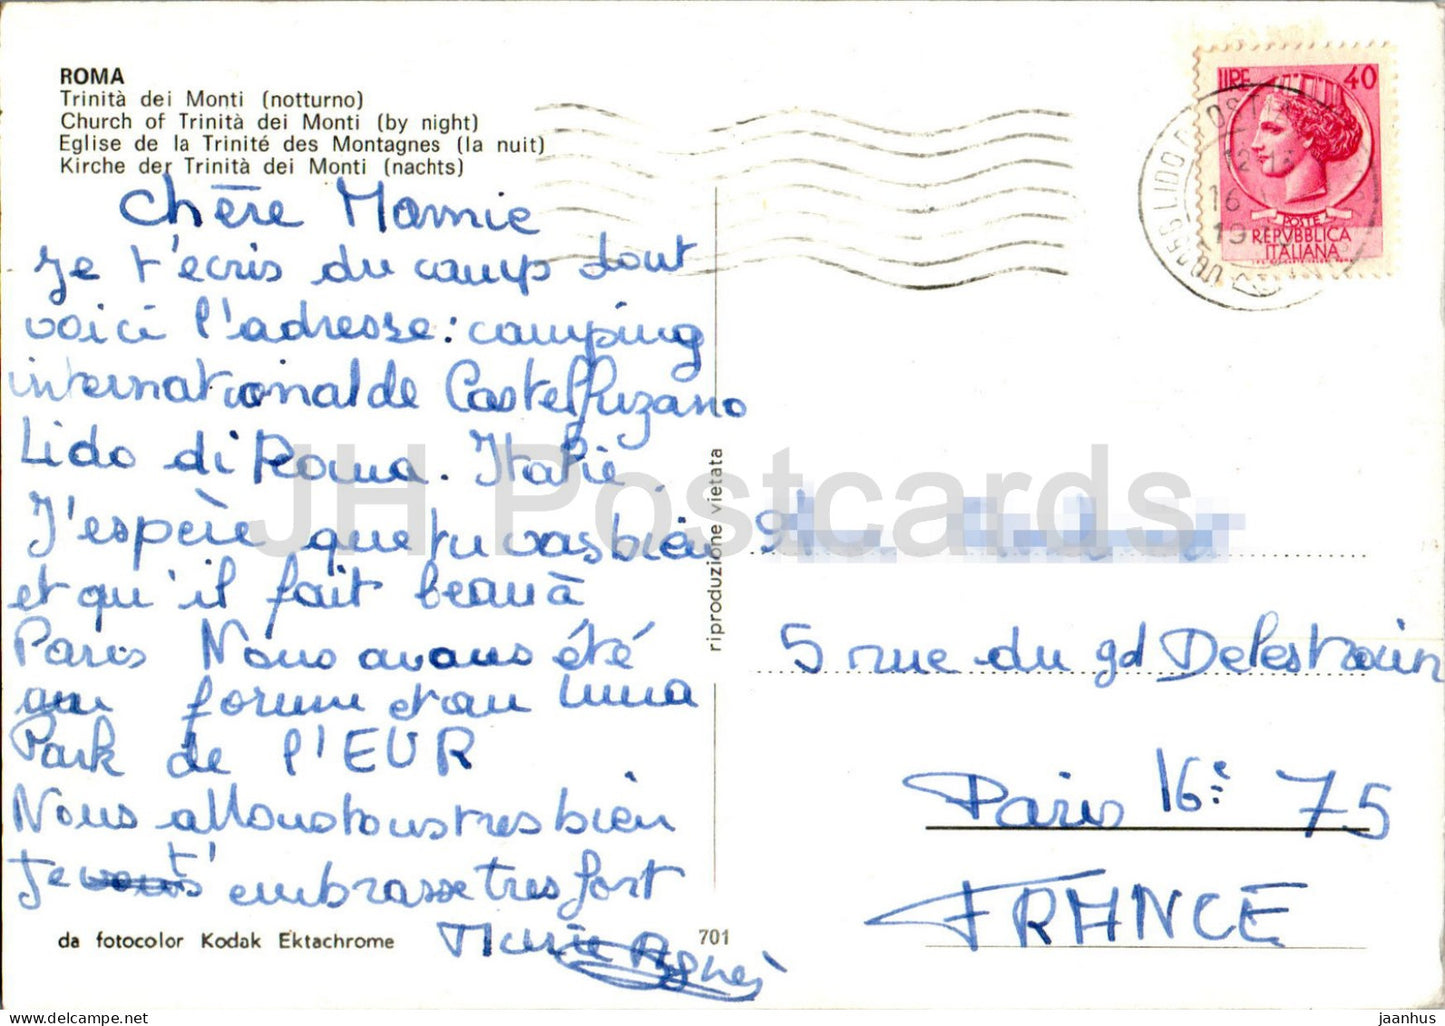 ROMA
Trinità dei Monti (notturno)
Church of Trinità dei Monti (by night)
Eglise de la Trinité des Montagnes (la nuit)
Kirche der Trinità dei Monti (nachts)
Chère Mamie
Je t'ecris du camp dont
voici l'adresse: camping
international de Castelfuzano
Lido di Roma. Italie.
J'espère que tu vas bien
et qu'il fait beau à
Paris Nous avons été
au forum et au Luna
Park de l'EUR
Nous allons tous tres bien
Je t'embrasse tres fort
Marie Agnes
da fotocolor Kodak Ektachrome
701
riproduzione vietata
LIRE 40
POSTE
REPVBBLICA
ITALIANA
LIDO OSTIA
12
16
19
5 rue du gd Delestrain
Paris 16è 75
FRANCE
JH Postcards
www.delcampe.net
jaanhus